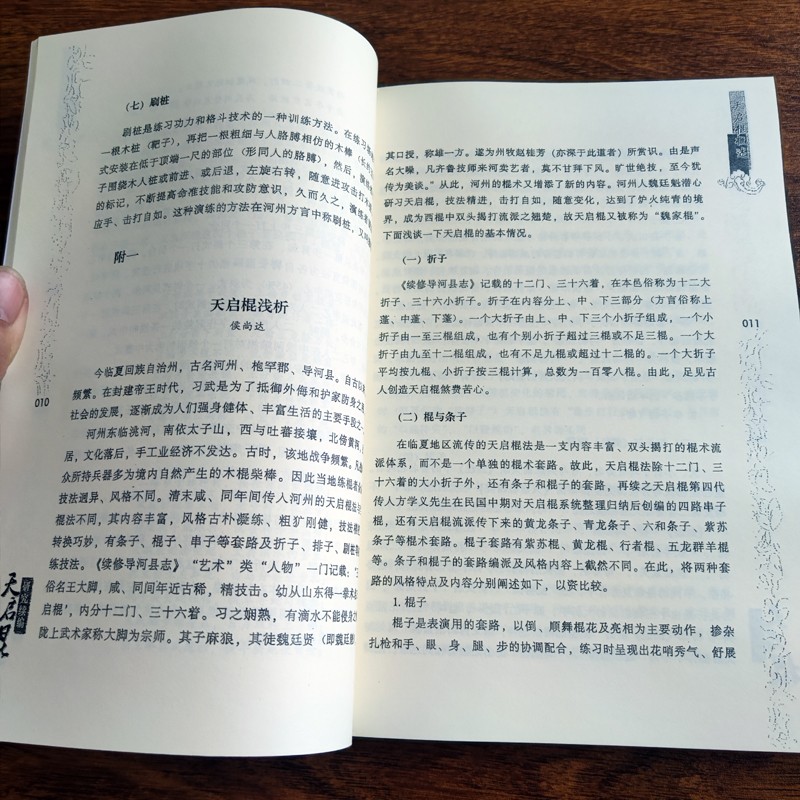 （七）刷桩
刷桩是练习功力和格斗技术的一种训练方法。在练习
一根木桩（靶子），再把一根粗细与人胳膊相仿的木棒
式安装在低于顶端一尺的部位（形同人的胳膊），然后，
子围绕木人桩或前进、或后退，左旋右转，随意进攻击打木
的标记，不断提高命准技能和攻防意识，久而久之，演练者
应手、击打自如。这种演练的方法在河州方言中称刷桩，又
附一
天启棍浅析
侯尚达
今临夏回族自治州，古名河州、枹罕郡、导河县。自古以
频繁。在封建帝王时代，习武是为了抵御外侮和护家防身之
社会的发展，逐渐成为人们强身健体、丰富生活的主要手段之一
河州东临洮河，南依太子山，西与吐蕃接壤，北傍黄河，
居，文化落后，手工业经济不发达。古时，该地战争频繁。凡
众所持兵器多为境内自然产生的木棍柴棒。因此当地练棍者
技法迥异、风格不同。清末咸、同年间传人河州的天启棍法与
棍法不同，其内容丰富，风格古朴凝练、粗犷刚健，技法精
转换巧妙，有条子、棍子、串子等套路及折子、排子、刷桩等
练技法。《续修导河县志》“艺术”类“人物”一门记载：
俗名王大脚，咸、同间年近古稀，精技击。幼从山东得一拳术
启棍’，内分十二门、三十六着。习之娴熟，有滴水不能侵身之
陇上武术家称大脚为宗师。其子麻狼，其徒魏廷贤（即魏廷
010
天启棍
其口授，称雄一方。遂为州牧赵桂芳（亦深于此道者）所赏识。由是声
名大噪，凡齐鲁技师来河卖艺者，莫不甘拜下风。旷世绝技，至今犹
传为美谈。”从此，河州的棍术又增添了新的内容。河州人魏廷魁潜心
研习天启棍，技法精进，击打自如，随意变化，达到了炉火纯青的境
界，成为西棍中双头揭打流派之翘楚，故天启棍又被称为“魏家棍”。
下面浅谈一下天启棍的基本情况。
（一）折子
《续修导河县志》记载的十二门、三十六着，在本邑俗称为十二大
折子、三十六小折子。折子在内容分上、中、下三部分（方言俗称上
蓬、中蓬、下蓬）。一个大折子由上、中、下三个小折子组成，一个小
折子由一至三棍组成，也有个别小折子超过三棍或不足三棍。一个大
折子由九至十二棍组成，也有不足九棍或超过十二棍的。一个大折子
平均按九棍、小折子按三棍计算，总数为一百零八棍。由此，足见古
人创造天启棍煞费苦心。
（二）棍与条子
在临夏地区流传的天启棍法是一支内容丰富、双头揭打的棍术流
派体系，而不是一个单独的棍术套路。故此，天启棍法除十二门、三
十六着的大小折子外，还有条子和棍子的套路，再续之天启棍第四代
传人方学义先生在民国中期对天启棍系统整理归纳后创编的四路串子
棍，还有天启棍流派传下来的黄龙条子、青龙条子、六和条子、紫苏
条子等棍术套路。棍子套路有紫苏棍、黄龙棍、行者棍、五龙群羊棍
等。条子和棍子的套路编派及风格内容上截然不同。在此，将两种套
路的风格特点及内容分别阐述如下，以资比较。
1. 棍子
棍子是表演用的套路，以倒、顺舞棍花及亮相为主要动作，掺杂
扎枪和手、眼、身、腿、步的协调配合，练习时呈现出花哨秀气、舒展
011